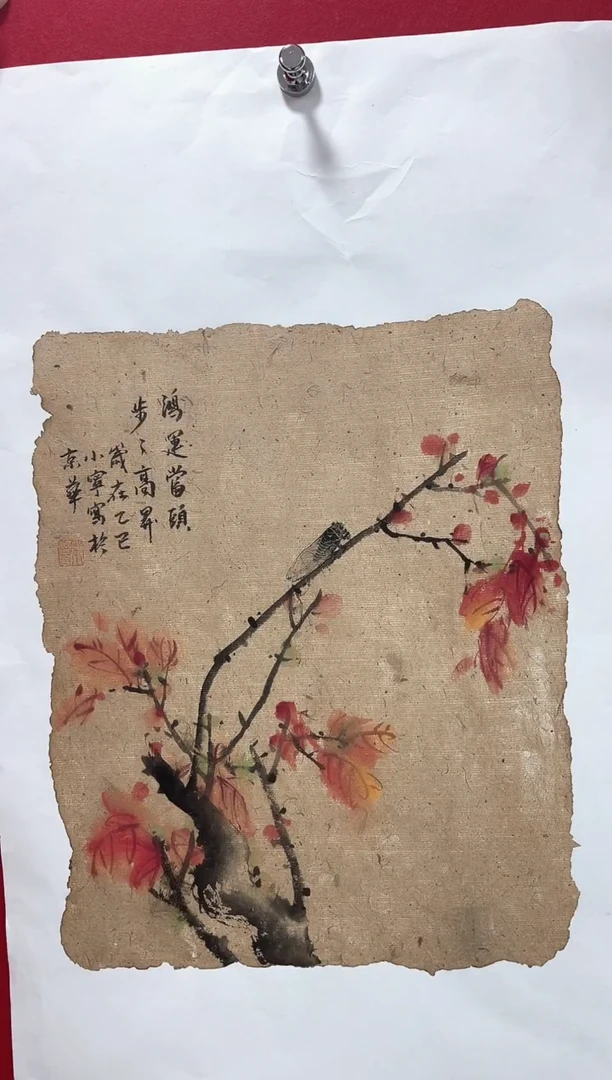 鴻運當頭
步々高昇
歲在乙巳
小寧寫於
京華